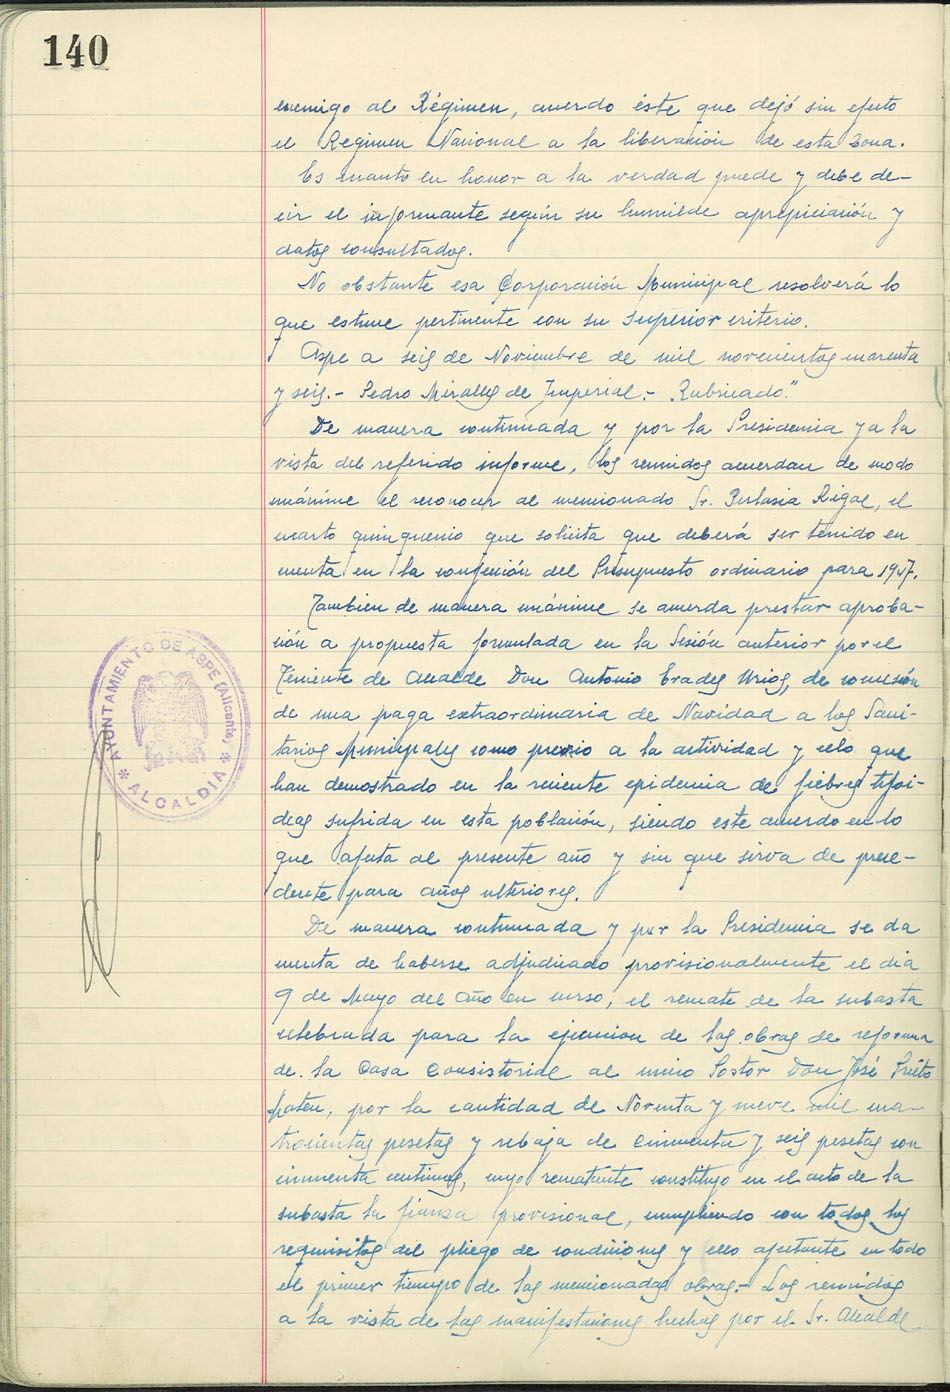 140
enemigo al Régimen, acuerdo éste que dejó sin efecto
el Régimen Nacional a la liberación de esta zona.
Es cuanto en honor a la verdad puede y debe de-
cir el informante según su humilde apreciación y
datos consultados.
No obstante esa Corporación Municipal resolverá lo
que estime pertinente con su superior criterio.
Aspe a seis de Noviembre de mil novecientos cuarenta
y seis.- Pedro Miralles de Imperial.- Rubricado."
De manera continuada y por la Presidencia y a la
vista del referido informe, los reunidos acuerdan de modo
unánime el reconocer al mencionado Sr. Pertusa Rigal, el
cuarto quinquenio que solicita que deberá ser tenido en
cuenta en la confección del Presupuesto ordinario para 1947.
Tambien de manera unánime se acuerda prestar aproba-
ción a propuesta formulada en la Sesión anterior por el
Teniente de Alcalde Don Antonio Erades Urios, de concesión
de una paga extraordinaria de Navidad a los Sani-
tarios Municipales como premio a la actividad y celo que
han demostrado en la reciente epidemia de fiebres tifoi-
deas sufrida en esta población, siendo este acuerdo en lo
que afecta al presente año y sin que sirva de prece-
dente para años ulteriores.
De manera continuada y por la Presidencia se da
cuenta de haberse adjudicado provisionalmente el día
9 de Mayo del año en curso, el remate de la subasta
celebrada para la ejecución de las obras de reforma
de la Casa Consistorial al único Postor Don José Prieto
por la cantidad de Noventa y nueve mil cua-
trocientas pesetas y rebaja de cincuenta y seis pesetas con
cincuenta centimos, cuyo rematante constituyo en el acto de la
subasta la fianza provisional, cumpliendo con todos los
requisitos del pliego de condiciones y ello afectante en todo
el primer tiempo de las mencionadas obras.- Los reunidos
a la vista de las manifestaciones hechas por el Sr. Alcalde
AYUNTAMIENTO DE ASPE (Alicante)
* ALCALDIA *